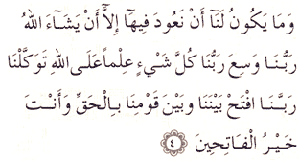 وَمَا يَكُونُ لَنَا أَنْ نَعُودَ فِيهَا إِلاَّ أَنْ يَشَاءَ اللهُ
رَبُّنَا وَسِعَ رَبُّنَا كُلَّ شَيْءٍ عِلْماً عَلَى اللهِ تَوَكَّلْنَا
رَبَّنَا افْتَحْ بَيْنَنَا وَبَيْنَ قَوْمِنَا بِالْحَقِّ وَأَنْتَ
خَيْرُ الْفَاتِحِينَ ٤